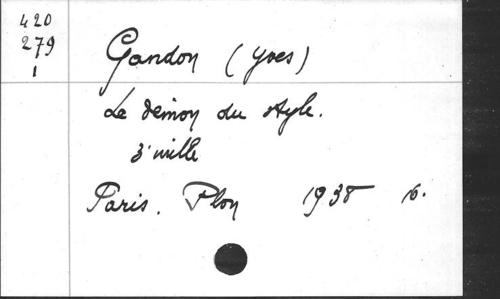 420
279
1
Gandon (Yves)
Le démon du style.
3e mille
Paris. Plon 1938 16.